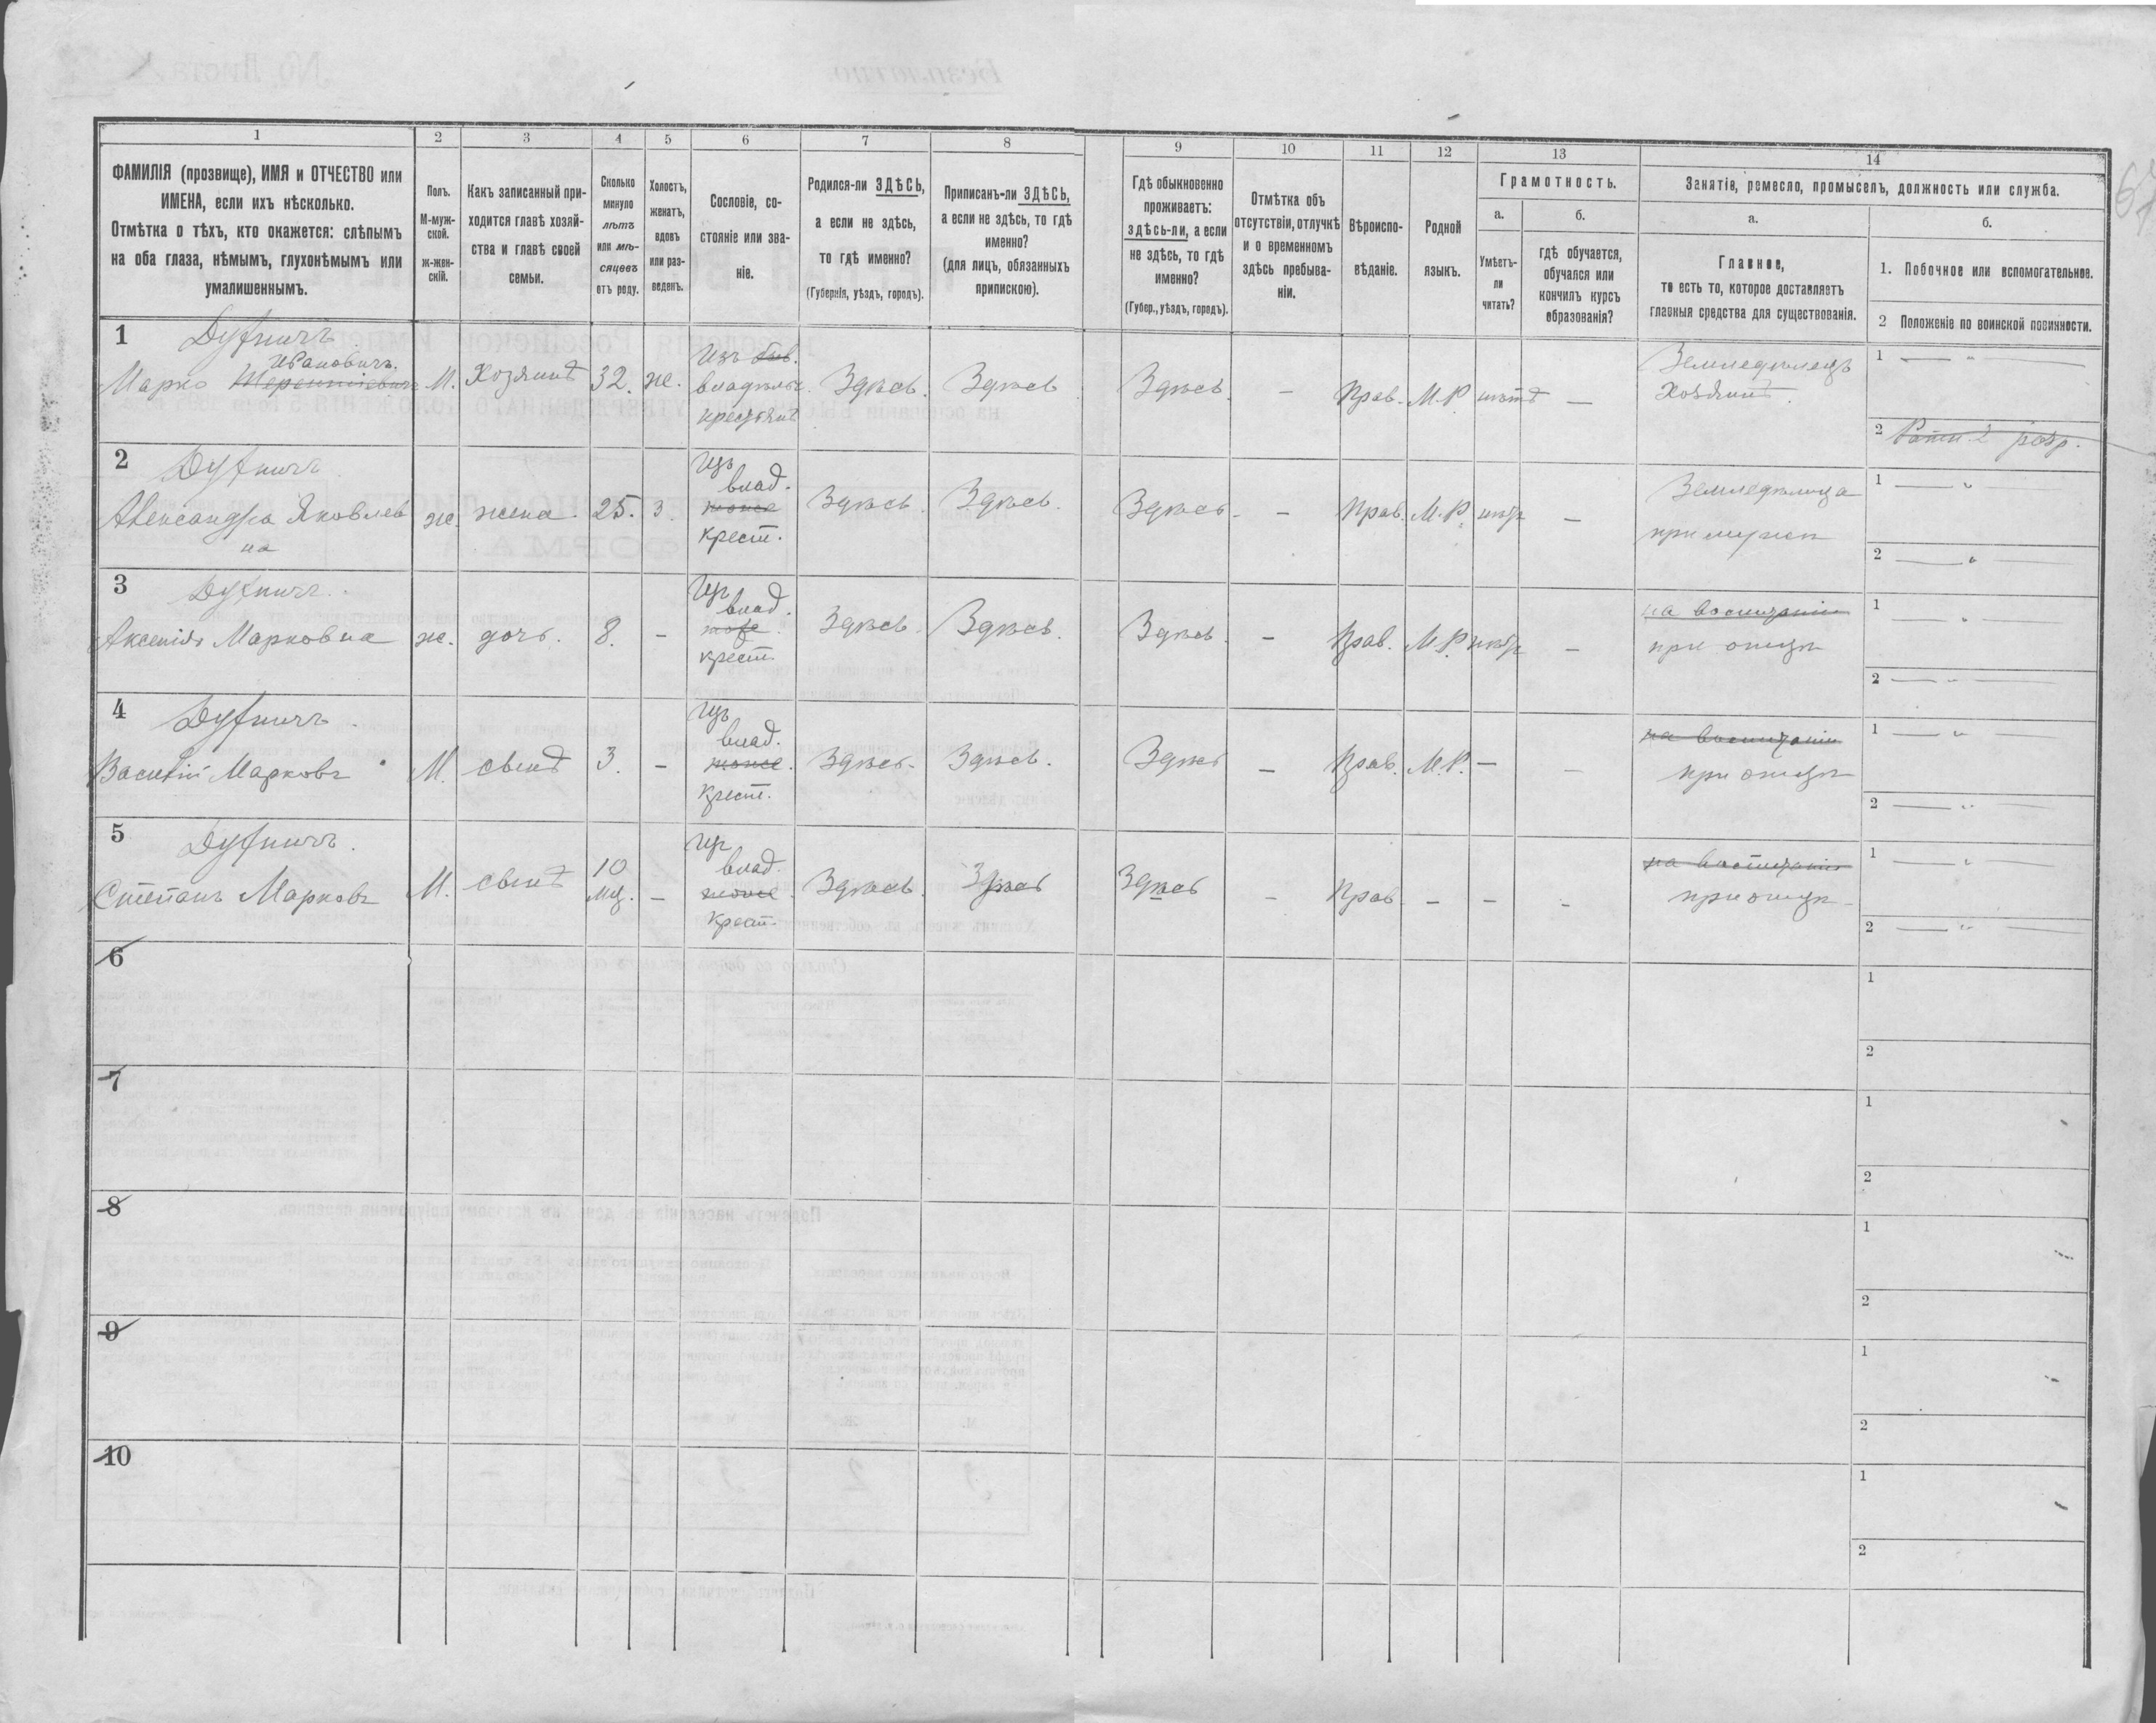 1 2 3 4 5 6 7 8 9 10 11 12 13 14
ФАМИЛІЯ (прозвище), ИМЯ и ОТЧЕСТВО или
ИМЕНА, если ихъ нѣсколько.
Отмѣтка о тѣхъ, кто окажется: слѣпымъ
на оба глаза, нѣмымъ, глухонѣмымъ или
умалишеннымъ.
Полъ.
М-муж-
ской.
ж-жен-
скій.
Какъ записанный при-
ходится главѣ хозяй-
ства и главѣ своей
семьи.
Сколько
минуло
лѣтъ
или мѣ-
сяцевъ
отъ роду.
Холостъ,
женатъ,
вдовъ
или раз-
веденъ.
Сословіе, со-
стояніе или зва-
ніе.
Родился-ли ЗДѢСЬ,
а если не здѣсь,
то гдѣ именно?
(Губернія, уѣздъ, городъ).
Приписанъ-ли ЗДѢСЬ,
а если не здѣсь, то гдѣ
именно?
(для лицъ, обязанныхъ
припискою).
Гдѣ обыкновенно
проживаетъ:
здѣсь-ли, а если
не здѣсь, то гдѣ
именно?
(Губер., уѣздъ, городъ).
Отмѣтка объ
отсутствіи, отлучкѣ
и о временномъ
здѣсь пребыва-
ніи.
Вѣроиспо-
вѣданіе.
Родной
языкъ.
Грамотность.
а.
Умѣетъ-
ли
читать?
б.
гдѣ обучается,
обучался или
кончилъ курсъ
образованія?
Занятіе, ремесло, промыселъ, должность или служба.
а.
Главное,
то есть то, которое доставляетъ
главныя средства для существованія.
б.
1. Побочное или вспомогательное.
2 Положеніе по воинской повинности.
1
Ивановичъ.
Марко Терентіевичъ М. Хозяинъ 32. ж.
Изъ быв.
владѣльч.
крестьянъ
Здѣсь. Здѣсь Здѣсь. — Прав. М.Р. нѣтъ —
Земледѣлецъ
Хозяинъ.
1 — " —
2 Ратн. 2 разр.
2
Александра Яковлев
на
ж. жена. 25. З.
Изъ
влад.
тоже
крест.
Здѣсь. Здѣсь. Здѣсь. — Прав. М.Р. нѣтъ —
Земледѣлица
при мужѣ
1 — " —
2 — " —
3
Аксенія Марковна ж. дочь. 8. —
Изъ
влад.
тоже
крест.
Здѣсь. Здѣсь. Здѣсь. — Прав. М.Р. нѣтъ —
на воспитаніи
при отцѣ
1 — " —
2 — " —
4
Василій Марковъ М. сынъ 3. —
Изъ
влад.
тоже.
крест.
Здѣсь. Здѣсь. Здѣсь — Прав. М.Р. — —
на воспитаніи
при отцѣ
1 — " —
2 — " —
5
Степанъ Марковъ М. сынъ 10
мц. —
Изъ
влад.
тоже.
крест.
Здѣсь. Здѣсь Здѣсь — Прав. — — —
на воспитаніи
при отцѣ
1 — " —
2 — " —
6
1
2
7
1
2
8
1
2
9
1
2
10
1
2